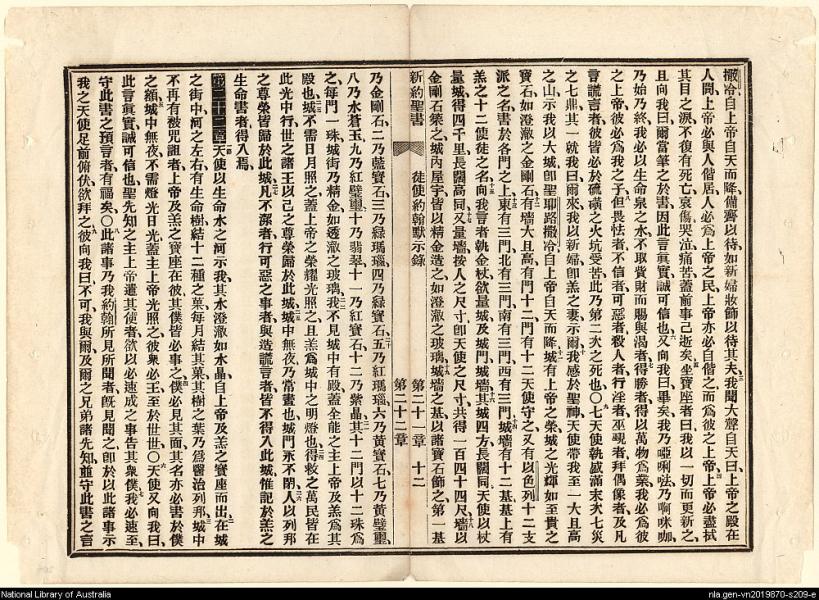 撒冷自上帝自天而降備齊以待如新婦妝飾以待其夫我聞大聲自天曰上帝之殿在
人間上帝必與人偕居人必爲上帝之民上帝亦必自偕之而爲彼之上帝上帝必盡拭
其目之淚不復有死亡哀傷哭泣痛苦蓋前事已逝矣坐寶座者曰我以一切而更新之
且向我曰爾當筆之於書因此言眞實誠可信也又向我曰畢矣我乃啞唎㕸乃啊咪咖
乃始乃終我必以生命泉之水不取貲財而賜與渴者得勝者得以萬物爲業我必爲彼
之上帝彼必爲我之子但畏怯者不信者可惡者殺人者行淫者巫覡者拜偶像者及凡
言謊言者彼皆必於硫磺之火坑受苦此乃第二次之死也〇七天使執盛滿末次七災
之七鼎其一就我曰爾來我以新婦卽羔之妻示爾我感於聖神天使帶我至一大且高
之山示我以大城卽聖耶路撒冷自上帝自天而降城有上帝之榮城之光輝如至貴之
寶石如澄澈之金剛石有墻大且高有十二門門有十二天使守之又有以色列十二支
派之名書於各門之上東有三門北有三門南有三門西有三門城墻有十二基基上有
羔之十二使徒之名向我言者執金杖欲量城及城門城墻其城四方長闊同天使以杖
量城得四千里長闊高同又量墻按人之尺寸卽天使之尺寸共得一百四十四尺墻以
金剛石築之城內屋宇皆以精金造之如澄澈之玻璃城墻之基以諸寶石飾之第一基
新約聖書
徒使約翰默示錄
第二十一章 十二
第二十二章
乃金剛石二乃藍寶石三乃綠瑪瑙四乃綠寶石五乃紅瑪瑙六乃黃寶石七乃黃璧璽
八乃水蒼玉九乃紅璧璽十乃翡翠十一乃紅寶石十二乃紫晶其十二門以十二珠爲
之每門一珠城街乃精金如透澈之玻璃我不見城中有殿蓋全能之主上帝及羔爲其
殿也城不需日月照之蓋上帝之榮耀光照之且羔爲城中之明燈也得救之萬民皆在
此光中行世之諸王以己之尊榮歸於此城城中無夜乃常晝也城門永不閉人以列邦
之尊榮皆歸於此城凡不潔者行可惡之事者與造謊言者皆不得入此城惟記於羔之
生命書者得入焉
第二十二章天使以生命水之河示我其水澄澈如水晶自上帝及羔之寶座而出在城
之街中河之左右有生命樹結十二種之菓每月結其菓其樹之葉乃爲醫治列邦城中
不再有被咒詛者上帝及羔之寶座在彼其僕皆必事之僕必見其面其名亦必書於僕
之額城中無夜不需燈光日光蓋主上帝光照之彼衆必王至於世世〇天使又向我曰
此言眞實誠可信也聖先知之主上帝遣其使者欲以必速成之事告其衆僕我必速至
守此書之預言者有福矣〇此諸事乃我約翰所見所聞者旣見聞之卽於以此諸事示
我之天使足前俯伏欲拜之彼向我曰不可我與爾及爾之兄弟諸先知並守此書之言
National Library of Australia
nla.gen-vn2019870-s209-e